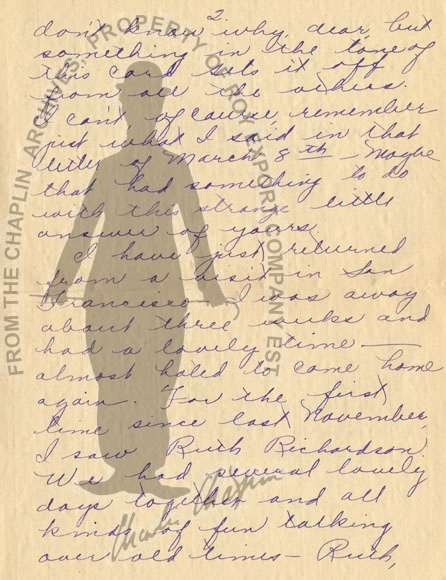 2
don't know why, dear, but
something in the tone of
this card sets it off
from all the others.
I can't of course, remember
just what I said in that
letter of March 8th. Maybe
that had something to do
with this strange little
answer of yours.
I have just returned
from a visit in San
Francisco — I was away
about three weeks and
had a lovely time —
almost hated to come home
again. For the first
time since last November,
I saw Ruth Richardson.
We had several lovely
days together and all
kinds of fun talking
over old times — Ruth,
FROM THE CHAPLIN ARCHIVES, PROPERTY OF ROY EXPORT COMPANY EST.
Charles Chaplin